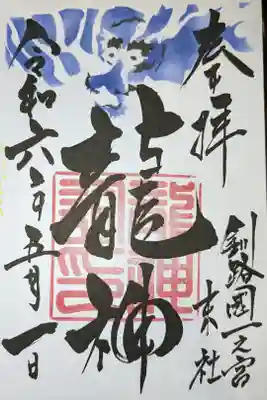 奉拝
釧路國一之宮
末社
龍神
龍神之印
令和六年五月一日